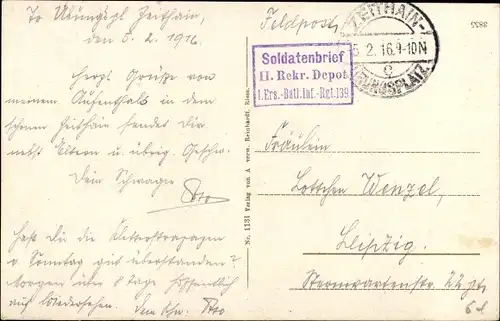 Tr. Übungspl. Zeithain,
den 5.2.1916.
Herzl. Grüße von
meinem Aufenthalt in dem
schönen Zeithain sendet dir
nebst Eltern u. übrig. Geschw.
Dein Schwager
Otto
Hast Du die
v. Sonntag gut überstanden?
Morgen über 8 Tage hoffentlich
auf Wiedersehen. Dein Schw. Otto
Nr. 1131 Verlag von A verw. Reinhardt, Riesa.
Feldpost
ZEITHAIN
5.2.16.9-10N
c
ÜBUNGSPLATZ
3855
Soldatenbrief
II. Rekr. Depot
I. Ers.-Batl. Inf.-Rgt. 139
Fräulein
Lottchen Wenzel,
Leipzig.
Sternwartenstr. 22